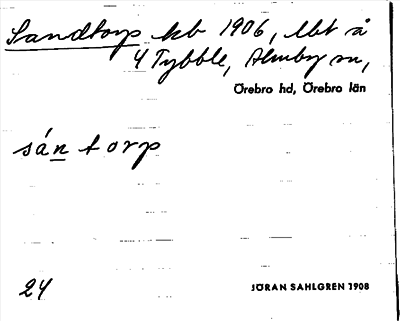 Sandtorp kb 1906, lbt å
4 Tybble, Almby sn,
Örebro hd, Örebro län
sán torp
24
JÖRAN SAHLGREN 1908